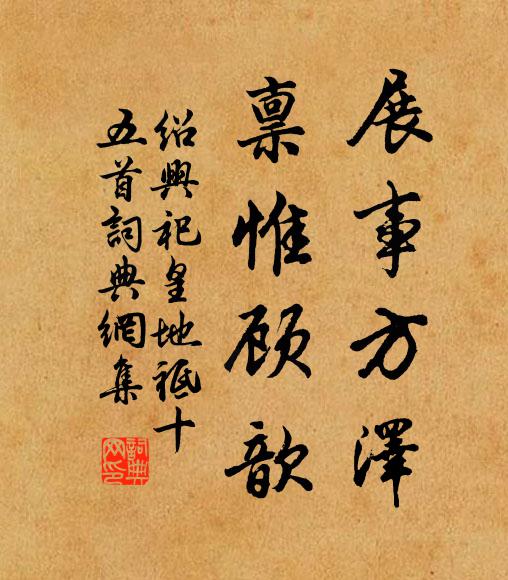 展事方澤
禀惟顾歆
绍興祀皇地祇十
五首詞典網集
詞典
网印